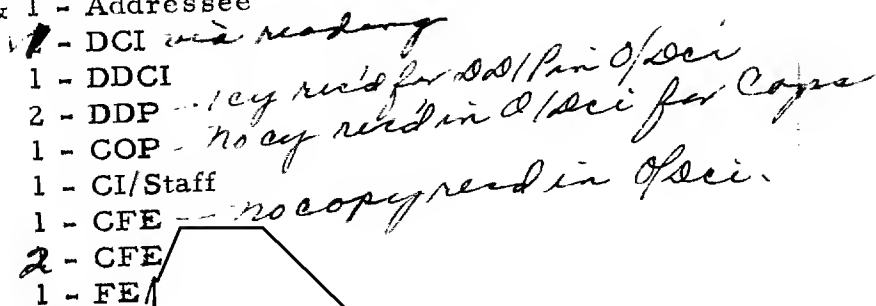 & 1 - Addressee
1 - DCI via reading
1 - DDCI
2 - DDP - 1 cy rec'd for DD/P in O/DCI
1 - COP - No cy rec'd in O/DCI for Cops
1 - CI/Staff
1 - CFE -- no copy recd in O/DCI.
2 - CFE
1 - FE/